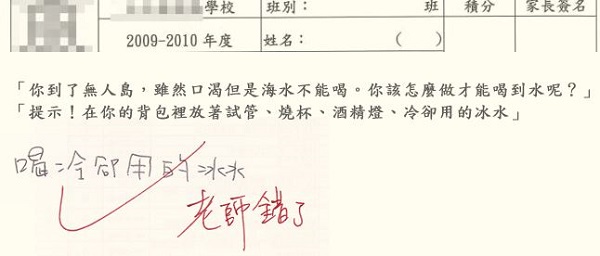 學校 班別： 班 積分 家長簽名
2009-2010 年度 姓名： （ ）
「你到了無人島，雖然口渴但是海水不能喝。你該怎麼做才能喝到水呢？」
「提示！在你的背包裡放著試管、燒杯、酒精燈、冷卻用的冰水」
喝冷卻用的冰水
老師錯了